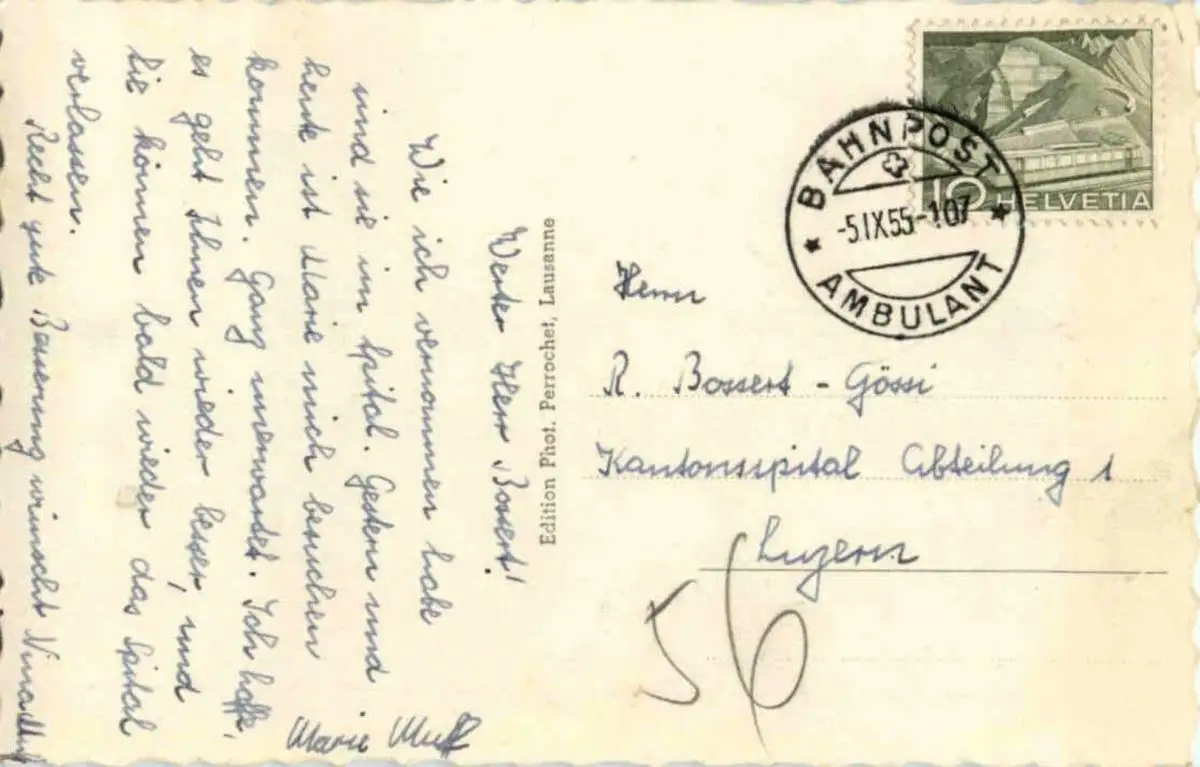 Werter Herr Bossert!
Wie ich vernommen habe
sind sie im Spital. Gestern und
heute ist Marie mich besuchen
kommen. Ganz unerwartet. Ich hoffe,
es geht Ihnen wieder besser, und
Sie können bald wieder das Spital
verlassen.
Recht gute Besserung wünscht Nina Muff
Marie Muff
Edition Phot. Perrochet, Lausanne
BAHNPOST
-5.IX.55-107
AMBULANT
10 HELVETIA
Herrn
R. Bossert - Gössi
Kantonsspital Abteilung 1
Luzern
56